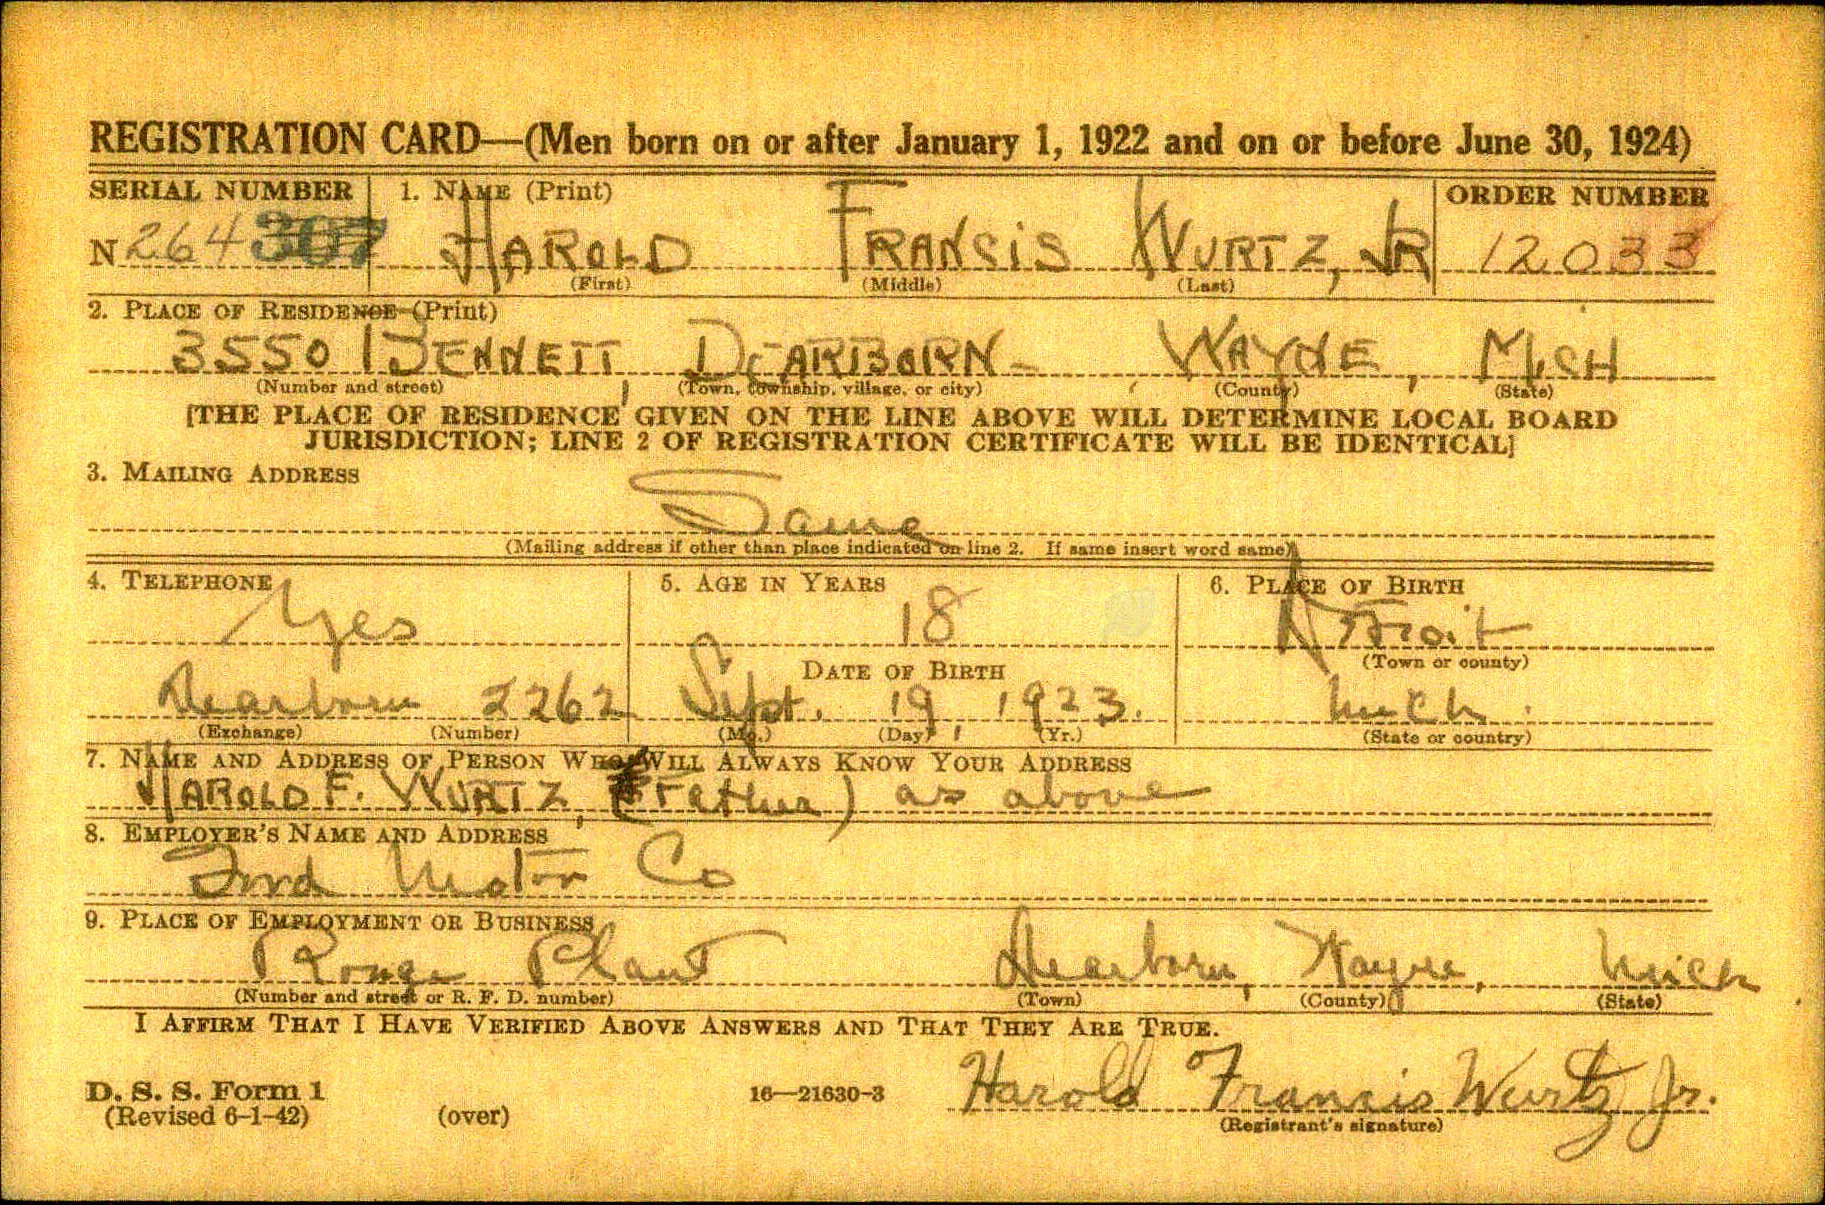 REGISTRATION CARD—(Men born on or after January 1, 1922 and on or before June 30, 1924)
SERIAL NUMBER 1. NAME (Print) ORDER NUMBER
N 264 307 HAROLD FRANCIS WURTZ, JR 12033
(First) (Middle) (Last)
2. PLACE OF RESIDENCE (Print)
3550 BENNETT, DEARBORN - WAYNE, MICH
(Number and street) (Town, township, village, or city) (County) (State)
[THE PLACE OF RESIDENCE GIVEN ON THE LINE ABOVE WILL DETERMINE LOCAL BOARD
JURISDICTION; LINE 2 OF REGISTRATION CERTIFICATE WILL BE IDENTICAL]
3. MAILING ADDRESS
Same
(Mailing address if other than place indicated on line 2. If same insert word same)
4. TELEPHONE 5. AGE IN YEARS 6. PLACE OF BIRTH
Yes 18 Detroit
DATE OF BIRTH (Town or county)
Dearborn 2262 Sept. 19, 1923. Mich.
(Exchange) (Number) (Mo.) (Day) (Yr.) (State or country)
7. NAME AND ADDRESS OF PERSON WHO WILL ALWAYS KNOW YOUR ADDRESS
HAROLD F. WURTZ, (Father) as above
8. EMPLOYER'S NAME AND ADDRESS
Ford Motor Co
9. PLACE OF EMPLOYMENT OR BUSINESS
Rouge Plant Dearborn, Wayne, Mich.
(Number and street or R. F. D. number) (Town) (County) (State)
I AFFIRM THAT I HAVE VERIFIED ABOVE ANSWERS AND THAT THEY ARE TRUE.
D. S. S. Form 1 16—21630-3 Harold Francis Wurtz Jr.
(Revised 6-1-42) (over) (Registrant's signature)